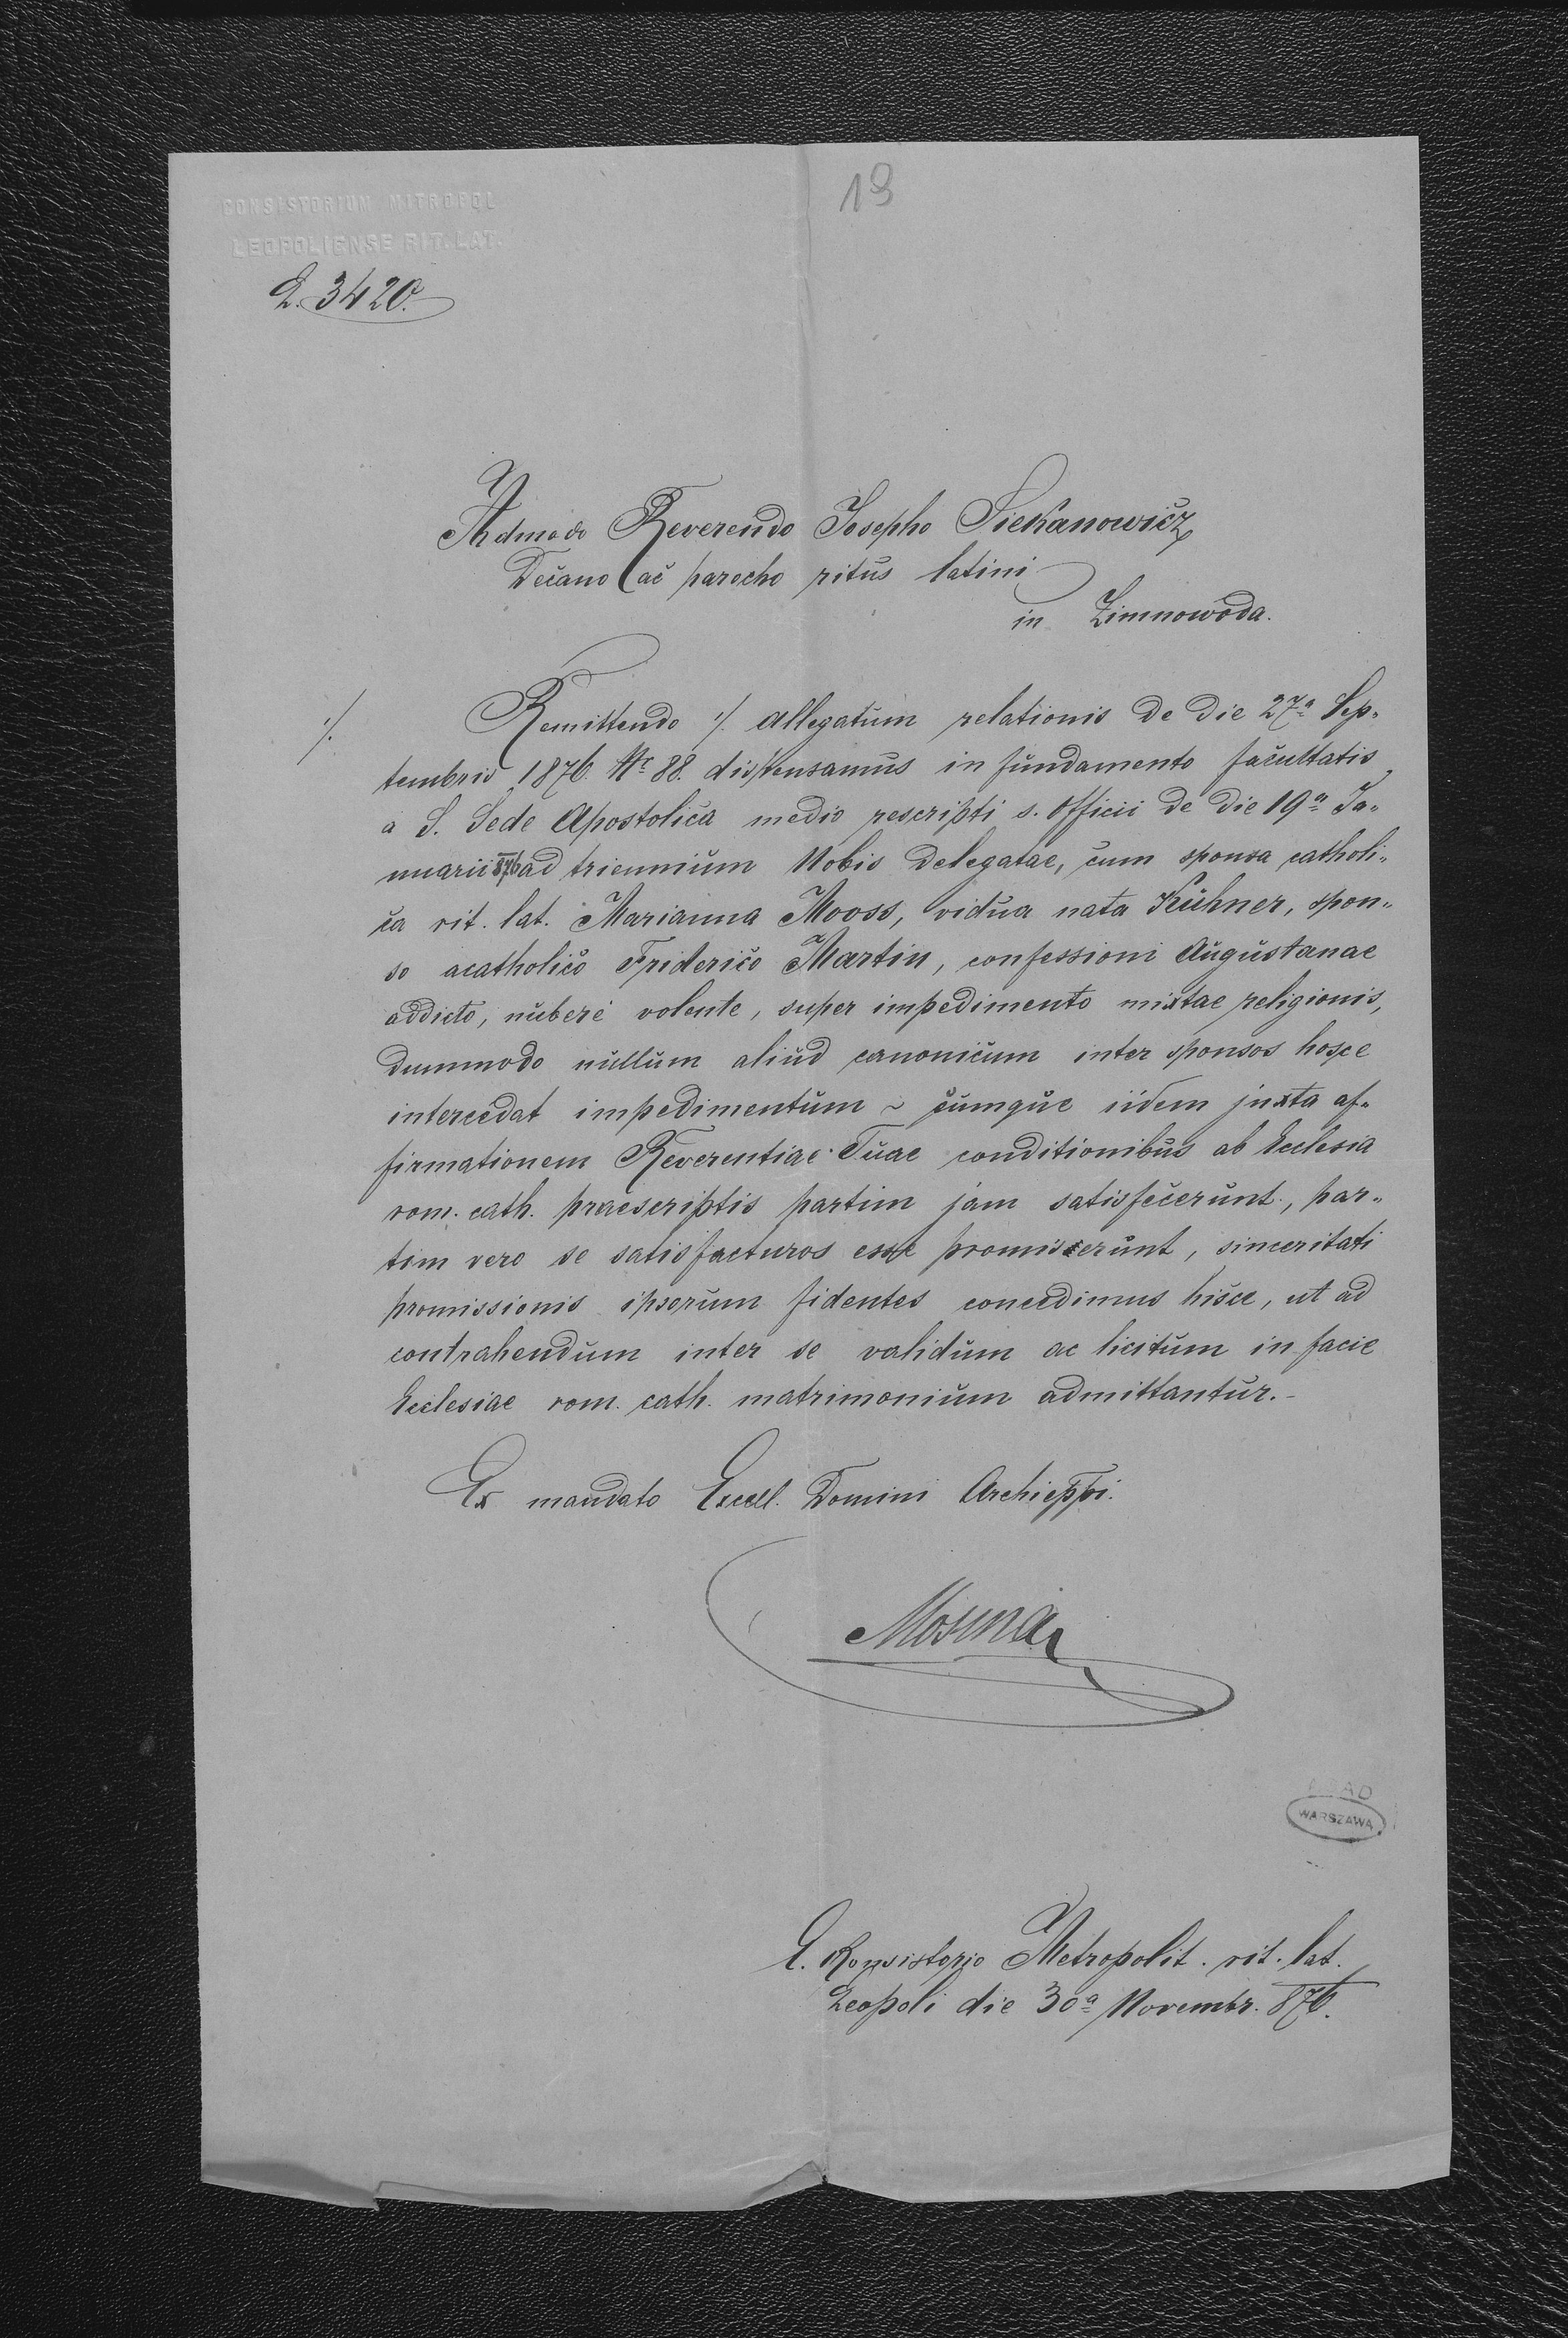 19
CONSISTORIUM MITROPOL
LEOPOLIENSE RIT. LAT.
L. 3420.
Admodo Reverendo Josepho Siekanowicz
Decano ac parocho ritus latini
in Zimnowoda.
./. Remittendo ./. allegatum relationis de die 27ª Sep-
tembris 1876. Nr 88. dispensamus in fundamento facultatis
a S. Sede Apostolica medio rescripti s. Officii de die 19ª Ja-
nuarii 876 ad triennium Nobis delegatae, cum sponsa catholi-
ca rit. lat. Marianna Mooss, vidua nata Kühner, spon-
so acatholico Friderico Martin, confessioni Augustanae
addicto, nubere volente, super impedimento mixtae religionis,
dummodo nullum aliud canonicum inter sponsos hosce
intercedat impedimentum ~ cumque iidem juxta af-
firmationem Reverentiae Tuae conditionibus ab Ecclesia
rom. cath. praescriptis partim jam satisfecerunt, par-
tim vero se satisfacturos esse promiserunt, sinceritati
promissionis ipsorum fidentes concedimus hisce, ut ad
contrahendum inter se validum ac licitum in facie
Ecclesiae rom. cath. matrimonium admittantur.-
Ex mandato Excell. Domini Archieppi.
WARSZAWA
E. Konsistorio Metropolit. rit. lat.
Leopoli die 30ª Novembr. 876.